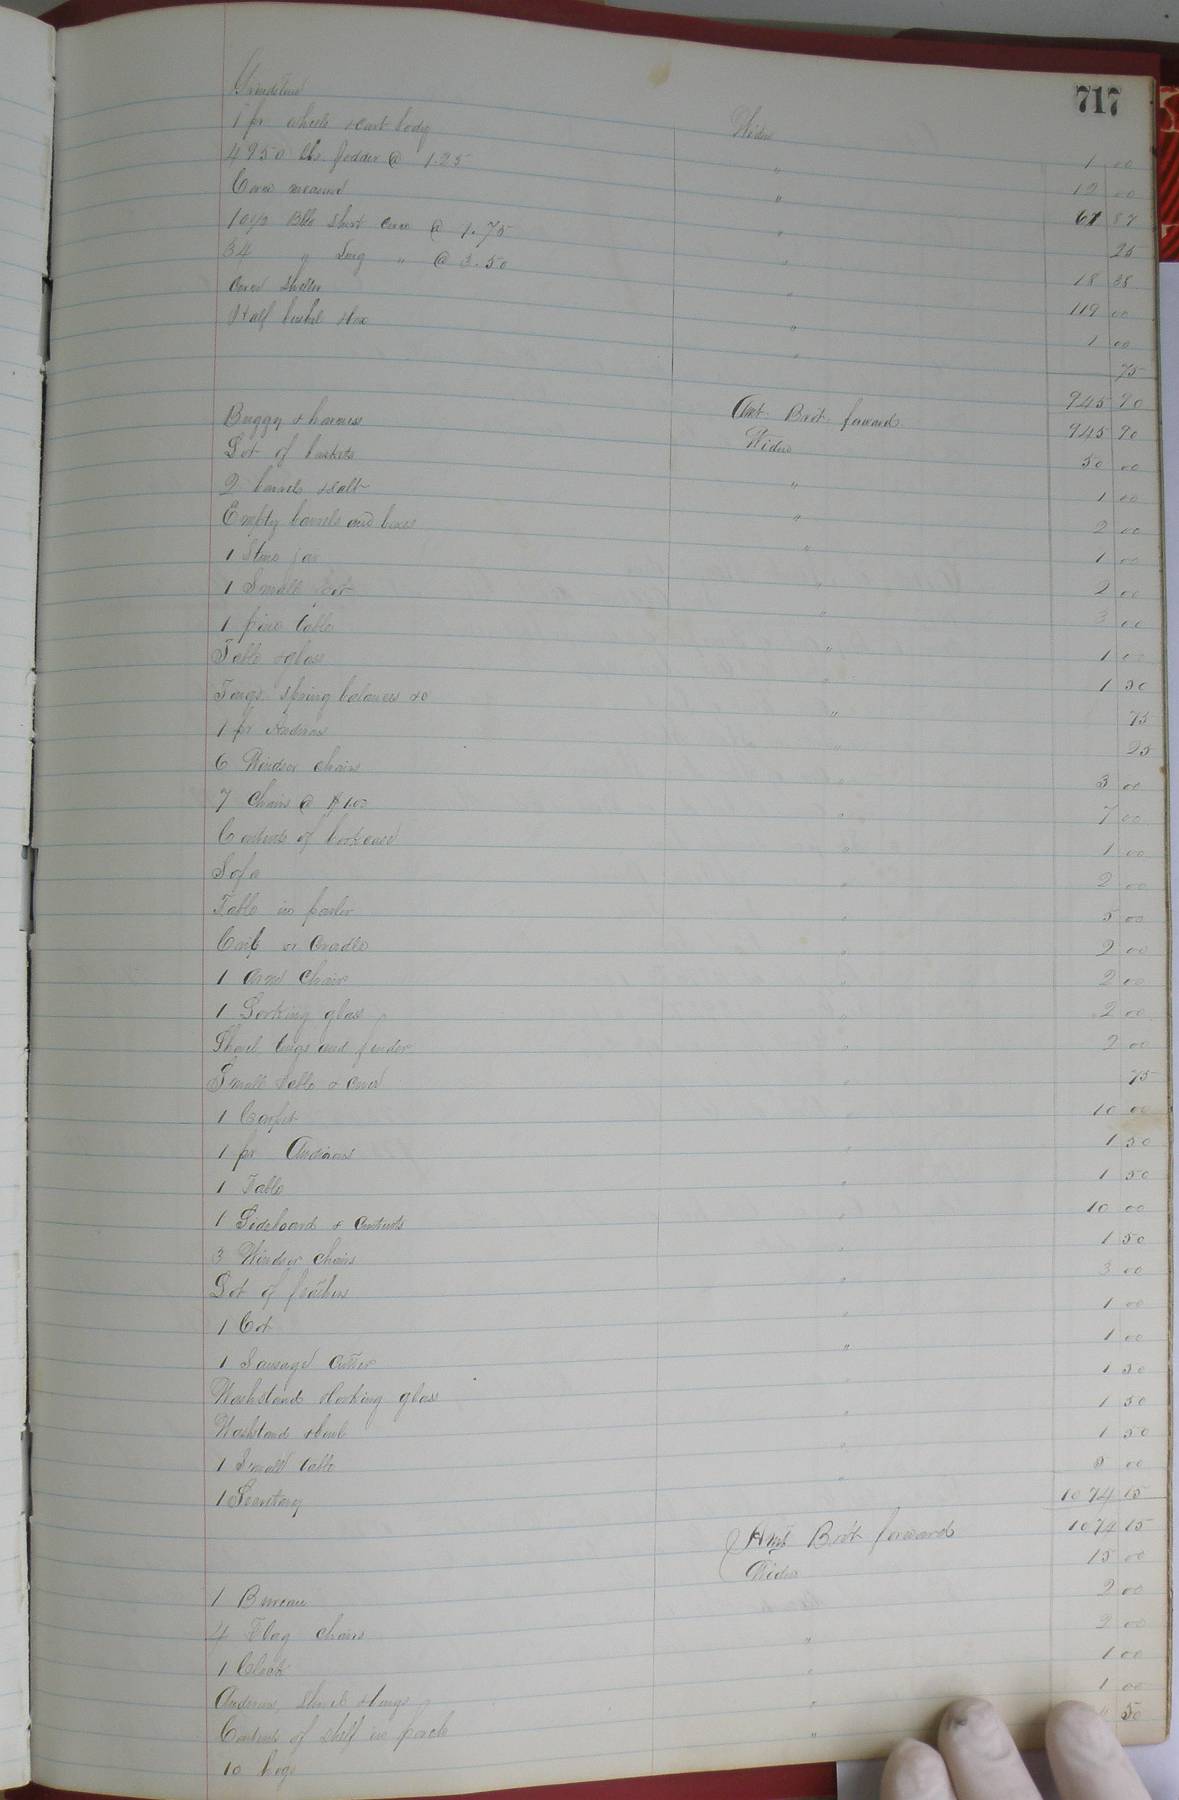 717
Grindstone Widow 1 00
1 pr wheels & cart body " 12 00
4950 lbs. fodder @ 1.25 " 61 87
Corn measure " 25
10 1/2 Bbls Short Corn @ 1.75 " 18 38
34 " Long " @ 3.50 " 119 00
Corn Sheller " 1 00
Half bushel & box " 75
945 90
Amt. Brot. forward 945 90
Buggy & harness Widow 50 00
Lot of baskets " 1 00
2 barrels & salt " 2 00
Empty barrels and boxes " 1 00
1 Stone jar " 2 00
1 Small " 3 00
1 pine table " 1 00
Table & glass " 1 50
Tongs, Spring balances &c " 75
1 pr Andirons " 25
6 Windsor chairs " 3 00
7 Chairs @ $1.00 " 7 00
Contents of bookcase " 1 00
Sofa " 2 00
Table in parlor " 5 00
Crib or Cradle " 2 00
1 Arm Chair " 2 00
1 Looking glass " 2 00
Shovel tongs and fender " 2 00
Small table & cover " 75
1 Carpet " 10 00
1 pr Andirons " 1 50
1 Table " 1 50
1 Sideboard & contents " 10 00
3 Windsor chairs " 1 50
Lot of feathers " 3 00
1 Cot " 1 00
1 Sausage Cutter " 1 00
Washstand & looking glass " 1 50
Washstand & bowl " 1 50
1 Small table " 1 50
1 Secretary " 5 00
1074 15
Amt Brot forward 1074 15
Widow 15 00
1 Bureau 2 00
4 Flag chairs " 2 00
1 Clock " 1 00
Andirons, Shovel & tongs " 1 00
Contents of shelf in porch " 50
10 hogs